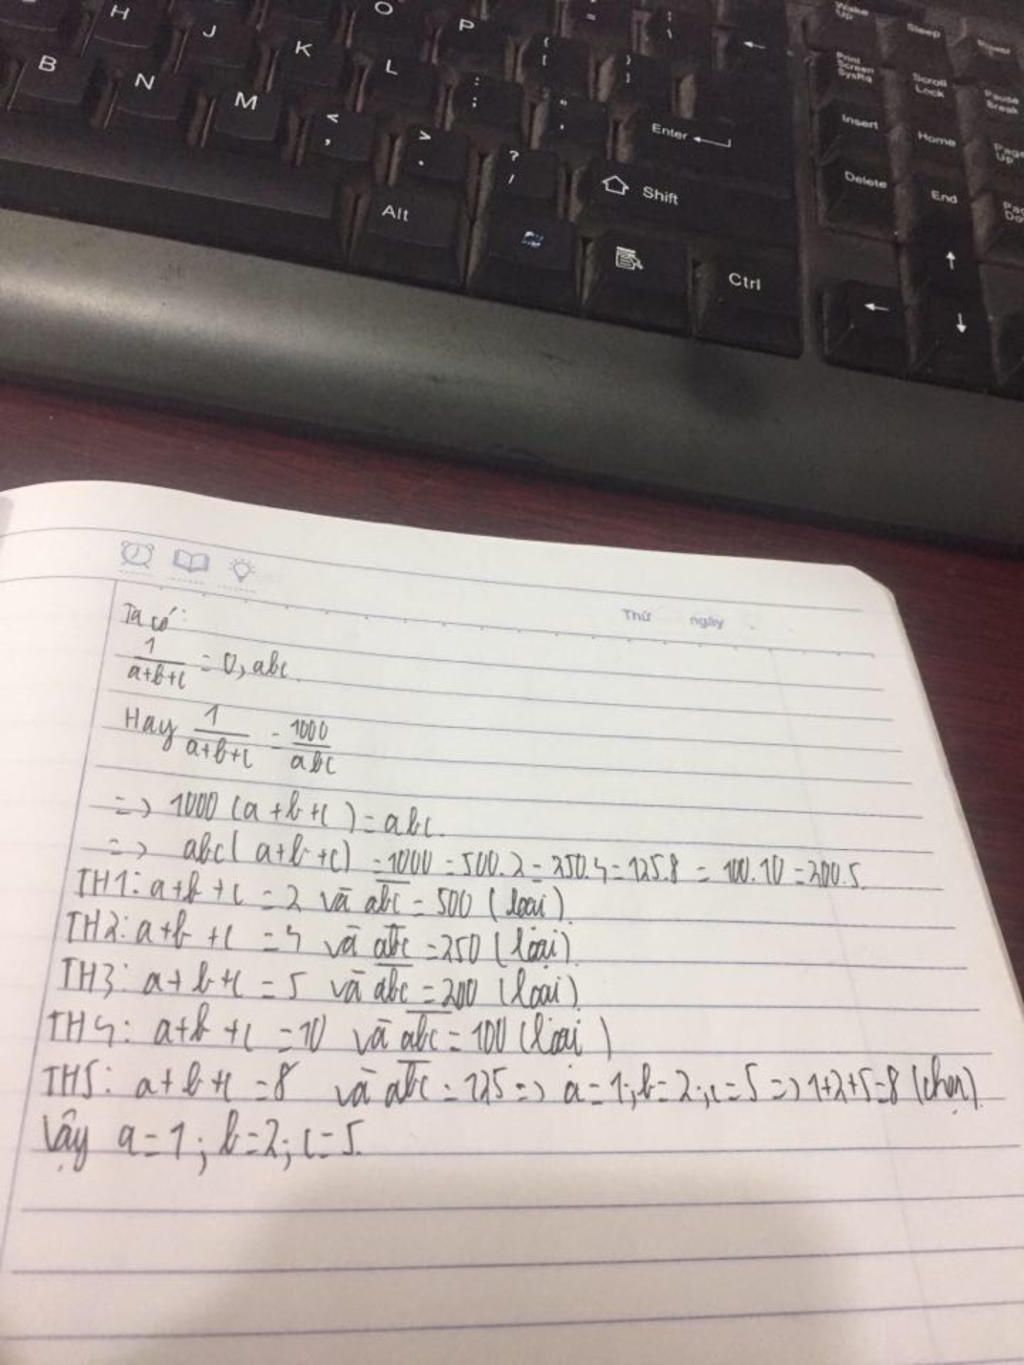 O P Wake Up Sleep Power
H J K L { [ } ] | \ ← Print Screen SysRq Scroll Lock Pause Break
B N M < , > . ? / : ; " ' Enter Insert Home Page Up
Alt Shift Delete End
Ctrl ↑
← ↓
Thứ ngày
Ta có:
1/(a+b+c) = 0,abc
Hay 1/(a+b+c) = 1000/abc
=> 1000 (a+b+c) = abc.
=> abc( a+b+c) = 1000 = 500.2 = 250.4 = 125.8 = 100.10 = 200.5.
TH1: a+b+c = 2 và abc = 500 ( loại).
TH2: a+b+c = 4 và abc = 250 ( loại).
TH3: a+b+c = 5 và abc = 200 (loại).
TH4: a+b+c = 10 và abc = 100 (loại)
TH5: a+b+c = 8 và abc = 125 => a=1; b=2; c=5 => 1+2+5=8 (chọn).
Vậy a=1; b=2; c=5.